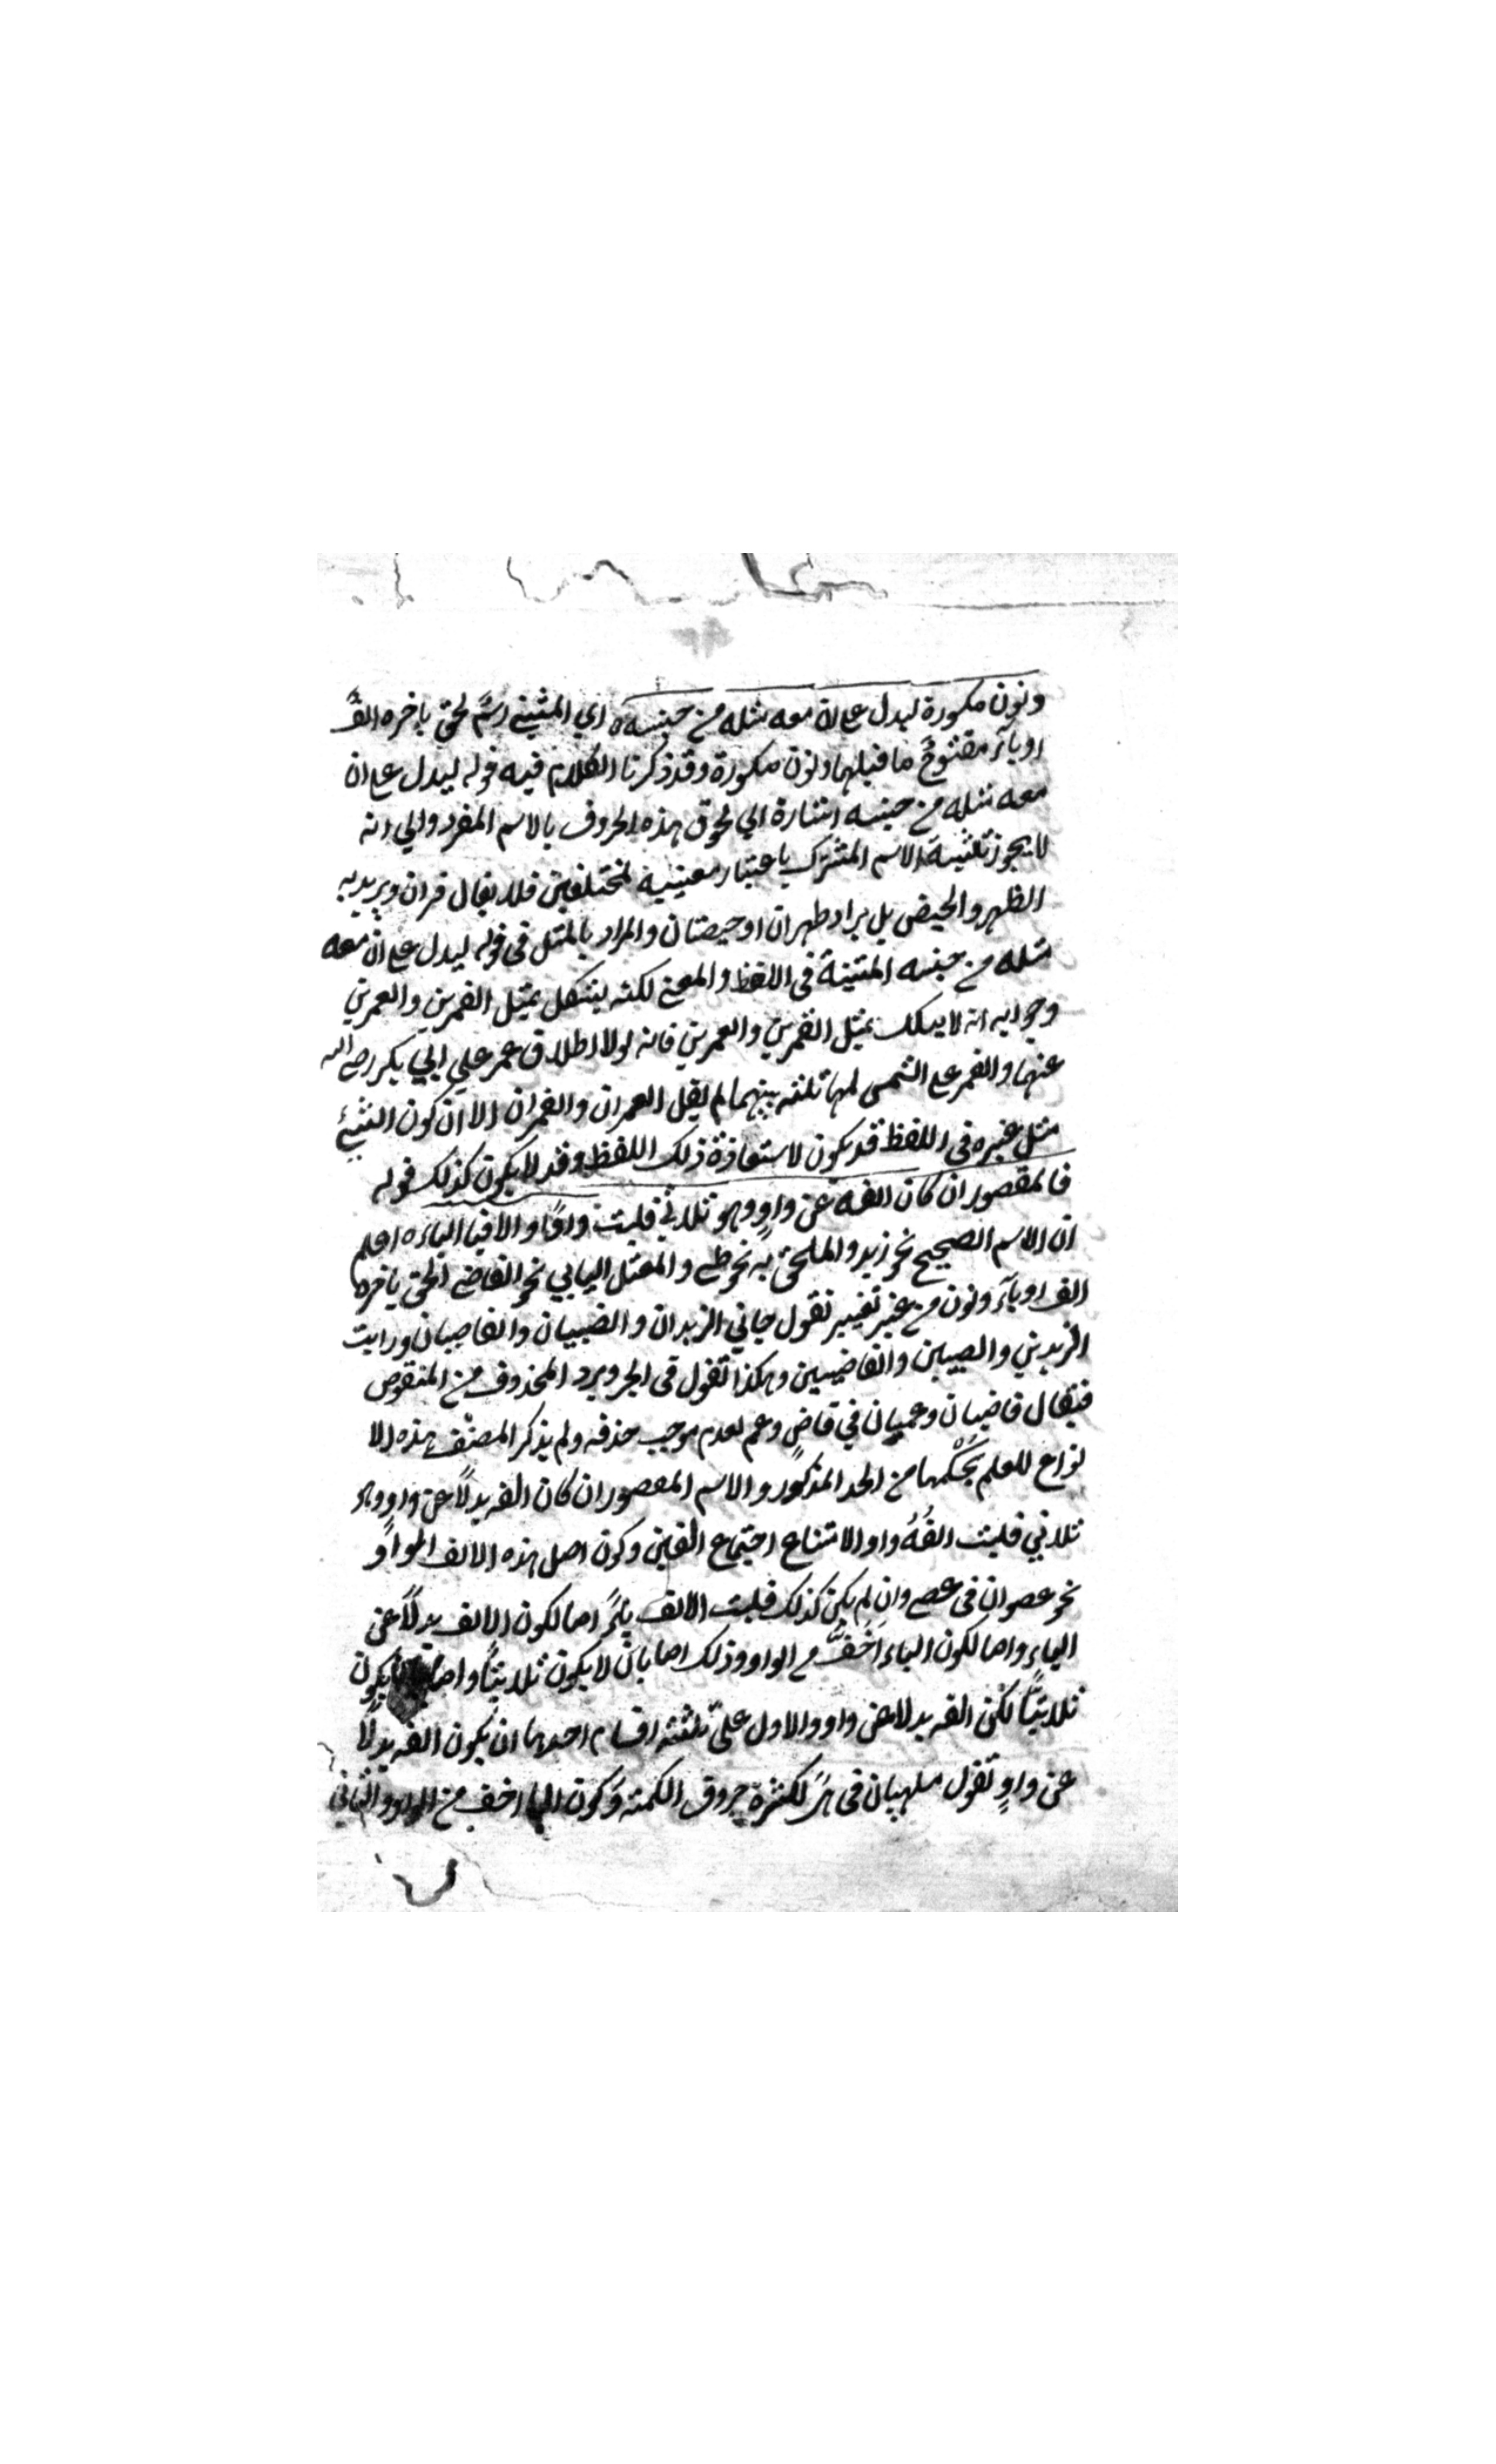 ونون مكسورة ليدل على ان معه مثله من جنسه ه اي المثنى اسمٌ لحق بآخره الفٌ
او ياءٌ مفتوحٌ ما قبلها ونون مكسورة وقد ذكرنا الكلام فيه قوله ليدل على ان
معه مثله من جنسه اشارة الي لحوق هذه الحروف بالاسم المفرد والي انه
لا يجوز تثنية الاسم المشترك باعتبار معنييه المختلفين فلا يقال قرآن ويريد به
الطهر والحيض بل يراد طهران او حيضتان والمراد بالمثل في قوله ليدل على ان معه
مثله من جنسه المثنية في اللفظ والمعنى لكنه يشكل بمثل القمرين والعمرين
وجوابه انه لا يشكك بمثل القمرين والعمرين فانه لولا اطلاق عمر علي ابي بكر رضي الله
عنهما والقمر على الشمس لمماثلة بينهما لم يقل العمران والقمران الا ان كون الشيئ
مثل غيره في اللفظ قد يكون لاستعارة ذلك اللفظ وقد لا يكون كذلك قوله
فالمقصور ان كان الفه عن واوٍ وهو ثلاثي قلبت واوًا والا فبالياء ه اعلم
ان الاسم الصحيح نحو زيد والملحق به نحو ظبي والمعتل اليايي نحو القاضي الحق بآخره
الف او ياءٌ ونون من غير تغيير تقول جاني الزيدان و الظبيان والقاضيان ورايت
الزيدين والظبيين والقاضيين وهكذا تقول في الجر ويرد المحذوف من المنقوص
فيقال قاضيان وعميان في قاضٍ وعمٍ لعدم موجب حذفه ولم يذكر المصنف هذه الا
نواع للعلم بحُكْمها من الحد المذكور و الاسم المقصور ان كان الفه بدلًا عن واوٍ وهو
ثلاثي قلبت الفُهُ واوا لامتناع اجتماع الفين وكون اصل هذه الالف الواوُ
نحو عصوان في عصى وان لم يكن كذلك قلبت الالف ياءً اما لكون الالف بدلًا عن
الياء واما لكون الياء اخفَّ من الواو وذلك اما بان لا يكون ثلاثيًّا واما يكون
ثلاثيًّا لكن الفه بدلا عن واو والاول على ثلثة اقسام احدها ان يكون الفه بدلًا
عن واوٍ تقول ملهيان في لكثرة حروف الكلمة وكون الياء اخف من الواو والثاني